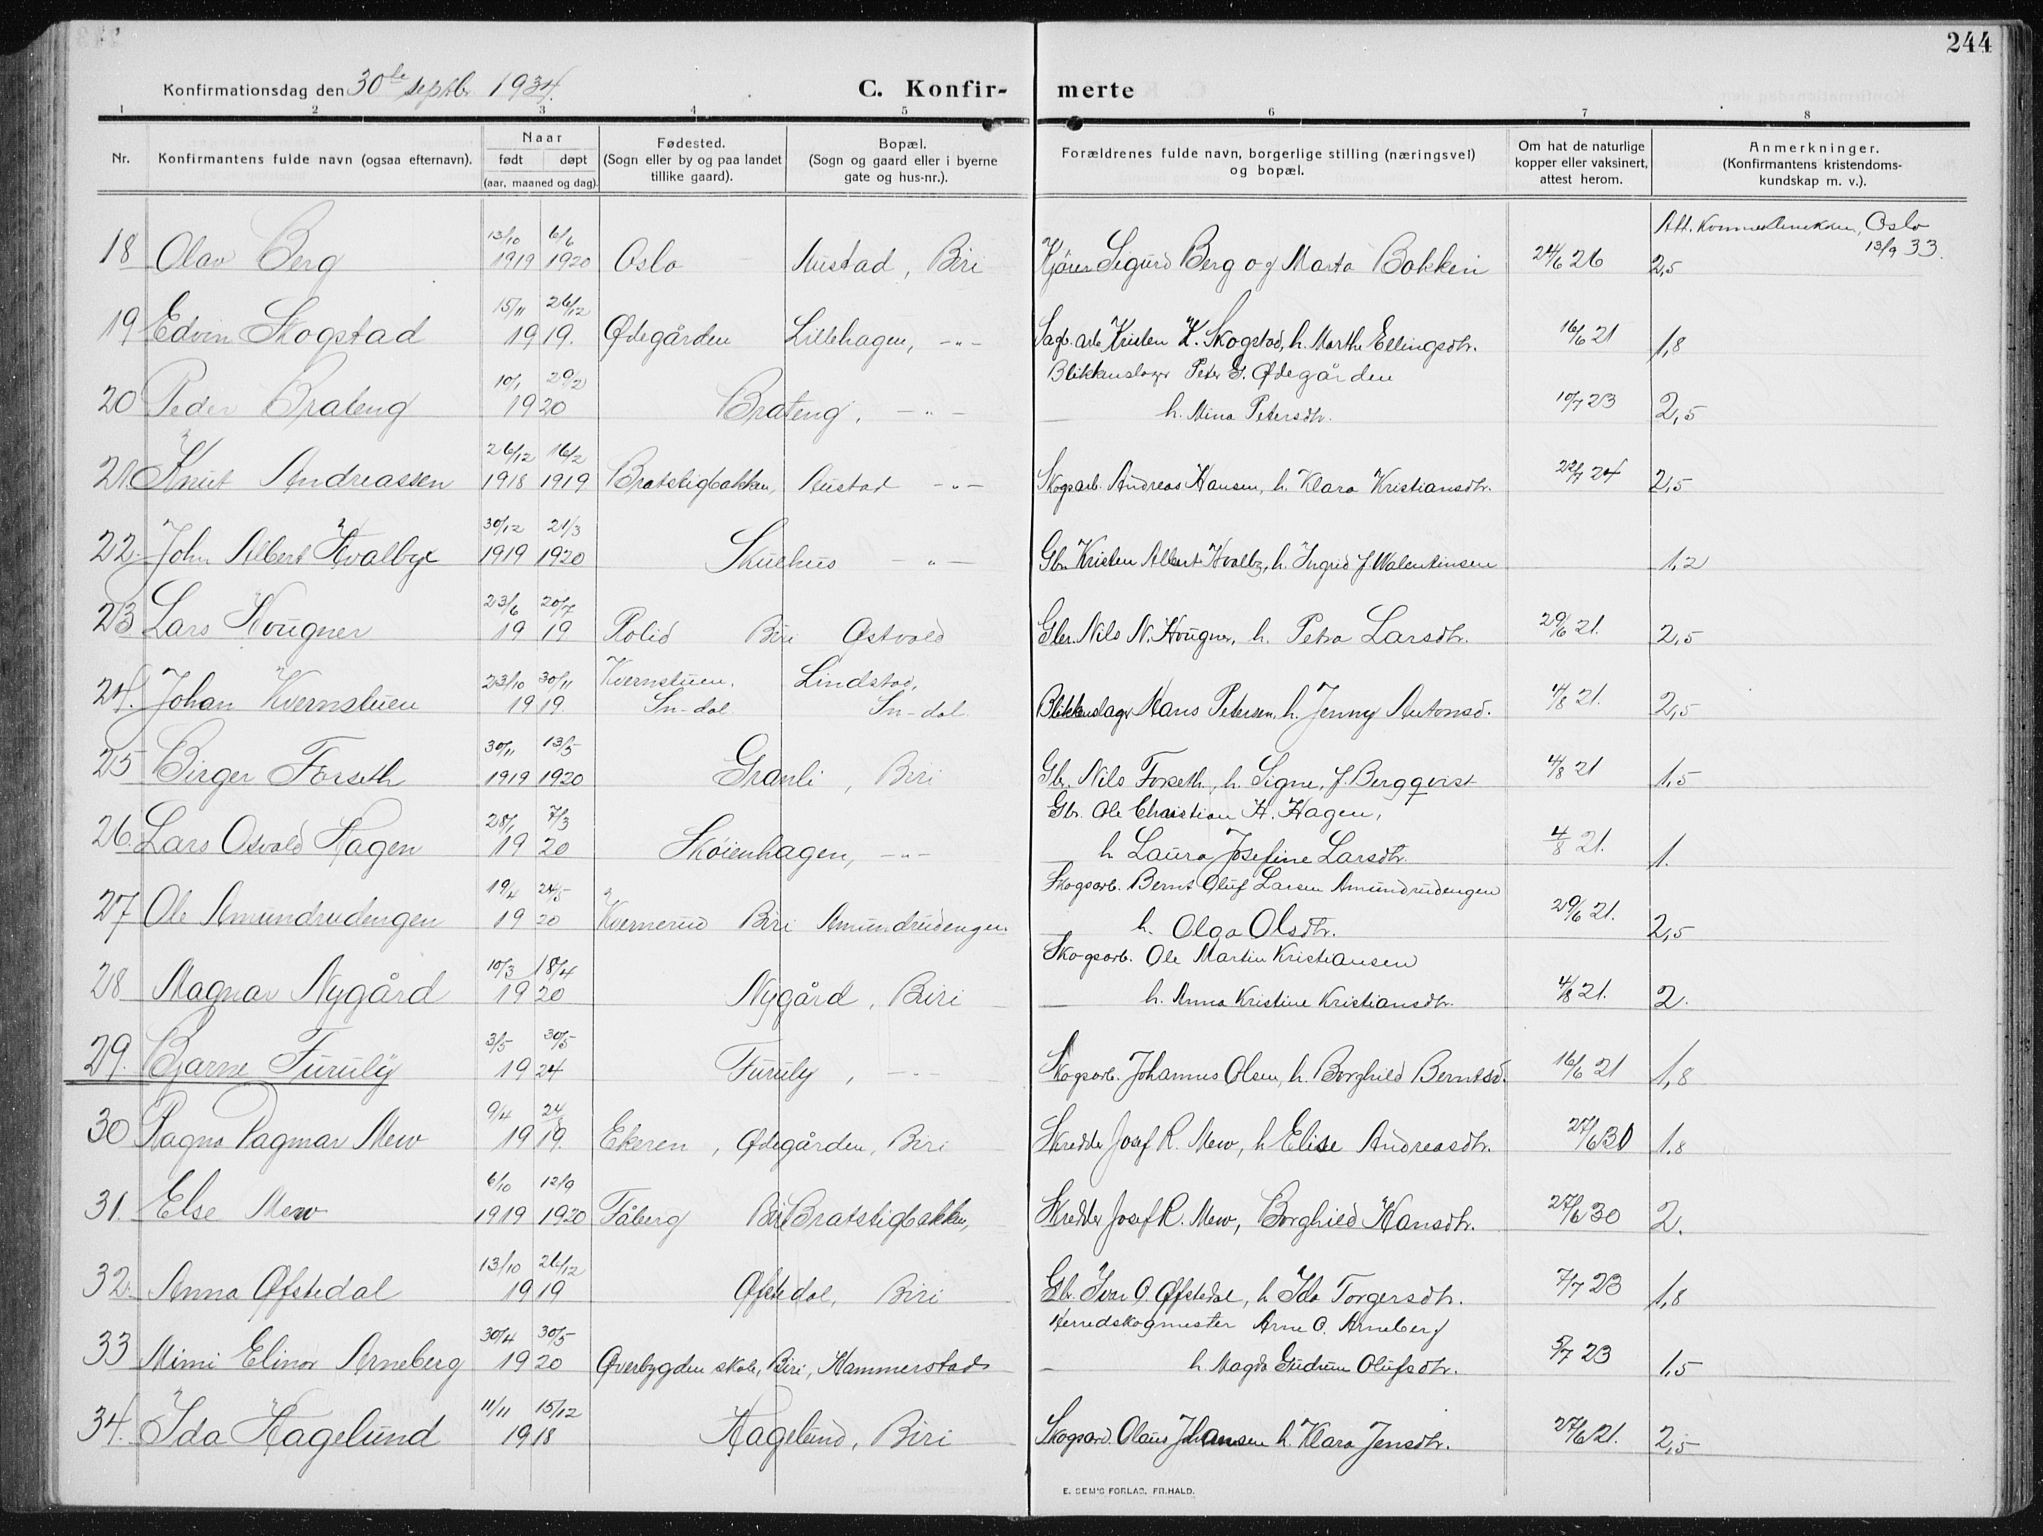 244
Konfirmationsdag den 30te septbr. 1934.
C. Konfir- merte
1 2 3 4 5 6 7 8
Nr. Konfirmantens fulde navn (ogsaa efternavn). Naar født døpt (aar, maaned og dag). Fødested. (Sogn eller by og paa landet tillike gaard). Bopæl. (Sogn og gaard eller i byerne gate og hus-nr.). Forældrenes fulde navn, borgerlige stilling (næringsvei) og bopæl. Om hat de naturlige kopper eller vaksinert, attest herom. Anmerkninger. (Konfirmantens kristendoms- kundskap m. v.).
13/10 6/6 Att. Oslo
18 Olav Berg 1919 1920 Oslo Austad, Biri Sigurd Berg og Marta Bakken 24/6 26 2,5 13/9 33.
15/11 26/12
19 Edvin Skogstad 1919. Ødegården Lillehagen, -"- Sagb. arb. Kristen K. Skogstad, h. Marthe Ellingsdtr. 16/6 21 1,8
10/1 29/2 Blikkenslager Peter G. Ødegården
20 Peder Brateng 1920 Brateng, -"- — h. Mina Petersdtr. 10/7 23 2,5
26/12 16/2
21. Knut Andreassen 1918 1919 Bratstigbakken, Austad -"- Skogsarb. Andreas Hansen, h. Klara Kristiansdtr. 22/7 24 2,5
30/12 21/3
22. John Albert Hvalbye 1919 1920 Skuehus -"- Gbr. Kristen Albert Hvalby, h. Ingrid J. Walentinsen 1,2
23/6 20/7
23 Lars Hougner 1919 Rolid Biri Ostvold Gbr. Nils N. Hougner, h. Petra Larsdtr. 29/6 21. 2,5
23/10 30/11 Kvernstuen. Lindstad,
24. Johan Kvernstuen 1919. Sn-dal Sn-dal. Blikkenslager Hans Petersen, h. Jenny Antonsd. 4/8 21. 2,5
30/11 13/5
25 Birger Forseth 1919 1920 Granli, Biri Gbr. Nils Forseth, h. Signe, f. Bergqvist 4/8 21 1,5
28/1 7/3 Gbr. Ole Christian H. Hagen,
26. Lars Osvald Hagen 1920 Skøienhagen, -"- — h Laura Josefine Larsdtr. 4/8 21. 1.
19/4 24/5 Skogsarb. Bernt Oluf Larsen Amundrudengen
27 Ole Amundrudengen 1920 Kvernerud Biri Amundrudengen h. Olga Olsdtr. 29/6 21. 2,5
10/3 18/4 Skogsarb. Ole Martin Kristiansen
28 Magnar Nygård 1920 Nygård, Biri — h. Anna Kristine Kristiansdtr. 4/8 21. 2.
3/5 30/5
29. Bjarne Furuly 1924 Furuly, -"- Skogsarb. Johannes Olsen, h. Borghild Berntsd. 16/6 21 1,8
9/4
30 Ragna Dagmar Mew 1919. Ekeren, Ødegården, Biri Skredder Josef R. Mew, h Elise Andreasdtr. 27/6 30 1.8
6/10 12/9
31. Else Mew 1919 1920 Fåberg Biri Bratstigbakken, Skredder Josef R. Mew, Borghild Hansdtr. 27/6 30 2.
13/10 26/12
32. Anna Øfstedal 1919 Øfstedal, Biri Gbr. Ivar O. Øfstedal, h Ida Torgersdtr. 7/7 23 1,8
30/4 30/5 Herredskogmester Arne O. Arneberg
33 Mimi Elinor Arneberg 1920 Øverbygden skole, Biri, Hammerstad — h. Magda Gudrun Olufsdtr. 5/7 23 1,5
11/11 15/12
34. Ida Hagelund 1918 Hagelund, Biri Skogsarb. Olaus Johansen h. Klara Jensdtr. 27/6 21. 2,5
E. SEM'S FORLAG, FR.HALD.